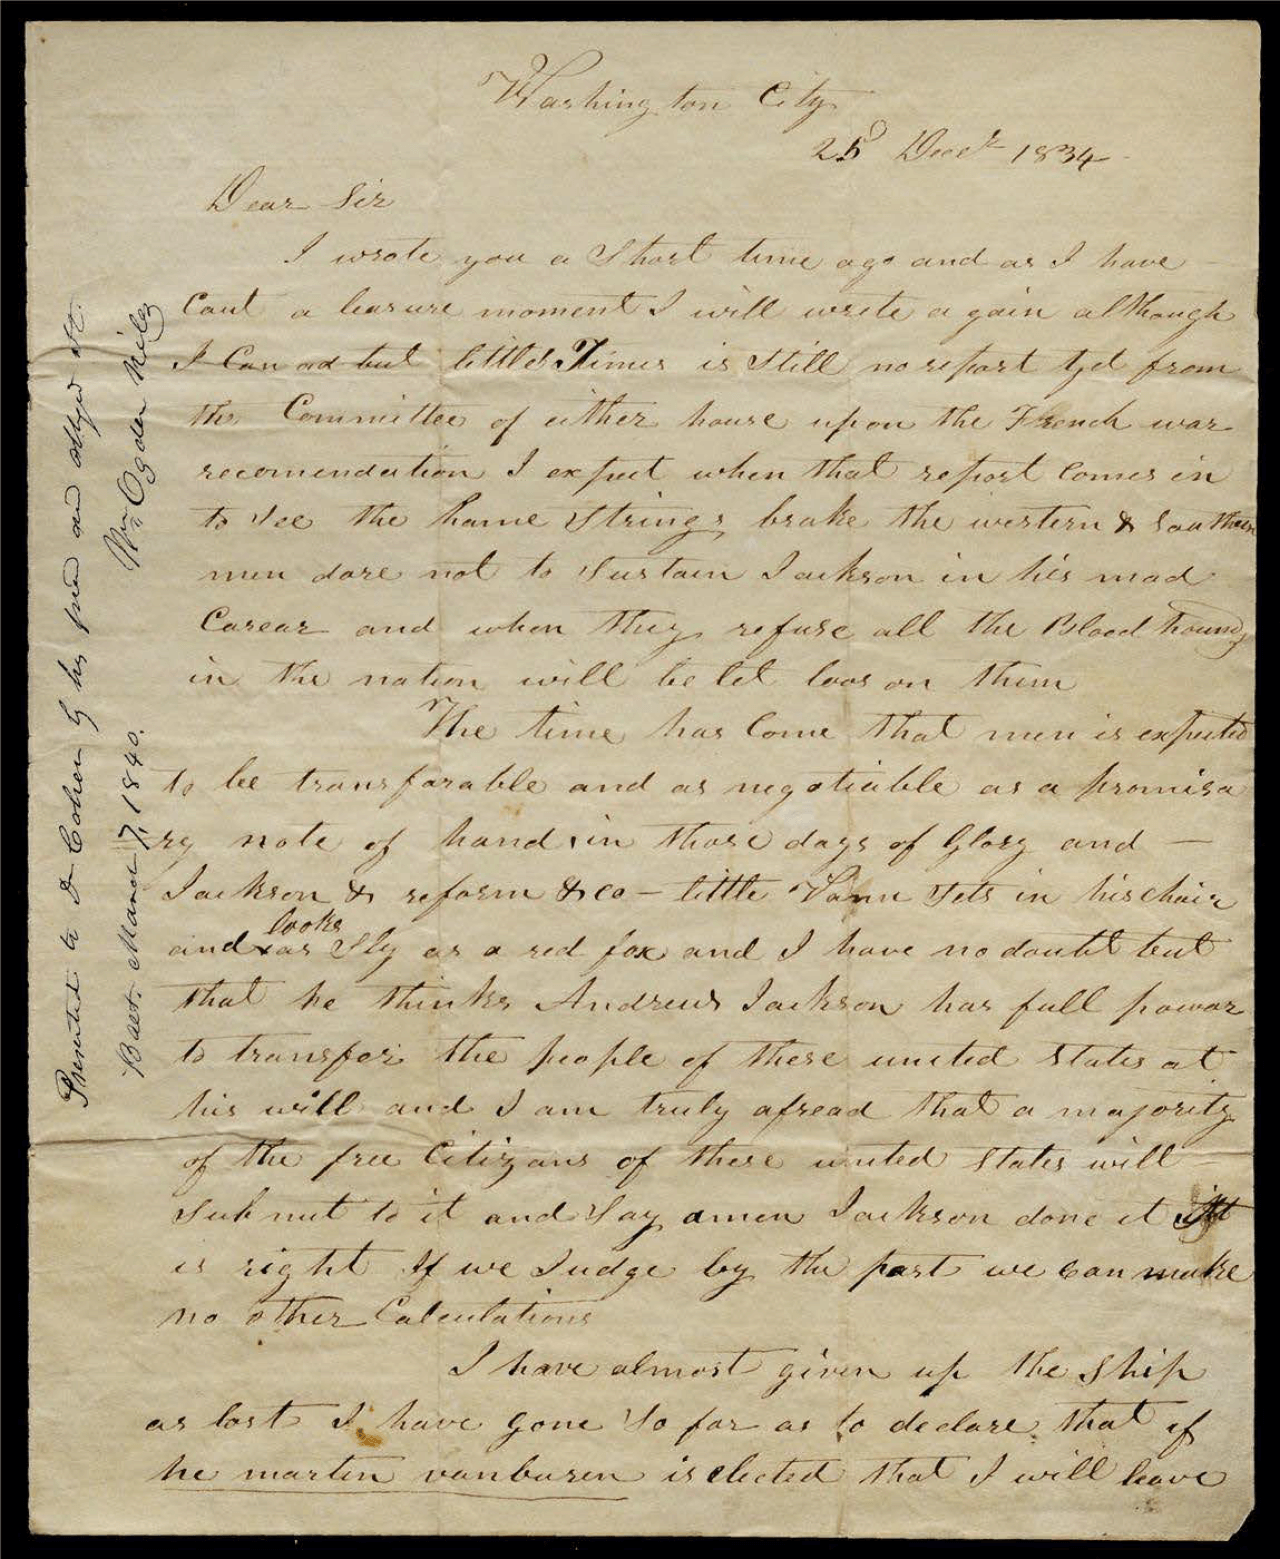 Washington City
25 Decr 1834
Dear Sir
I wrote you a Short time ago and as I have
Caut a leasure moment I will write a gain although
I Can ad but little Times is Still no report yet from
the Committee of either house upon the French war
recomendation I expect when that report Comes in
to See the hame Strings brake the western & Southern
men dare not to Sustain Jackson in his mad
Carear and when they refuse all the Blood hounds
in the nation will be let loos on them
The time has Come that men is expected
to be transfarable and as negotiable as a promisa
ry note of hand, in those days of Glory and —
Jackson & reform & co — little Vann Sets in his chair
looks
and as Sly as a red fox and I have no doubt but
that he thinks Andrew Jackson has full powar
to transfer the people of these united States at
his will and I am truly afread that a majority
of the free Citizans of these united States will
Submit to it and Say amen Jackson done it it
is right If we Judge by the past we can make
no other Calculations
I have almost given up the Ship
as lost I have gone So far as to declare that if
he martin vanburen is elected that I will leave
Presented to Cohen by his friend and obliged St.
Balt. March 7, 1840. Wm. Ogden Niles